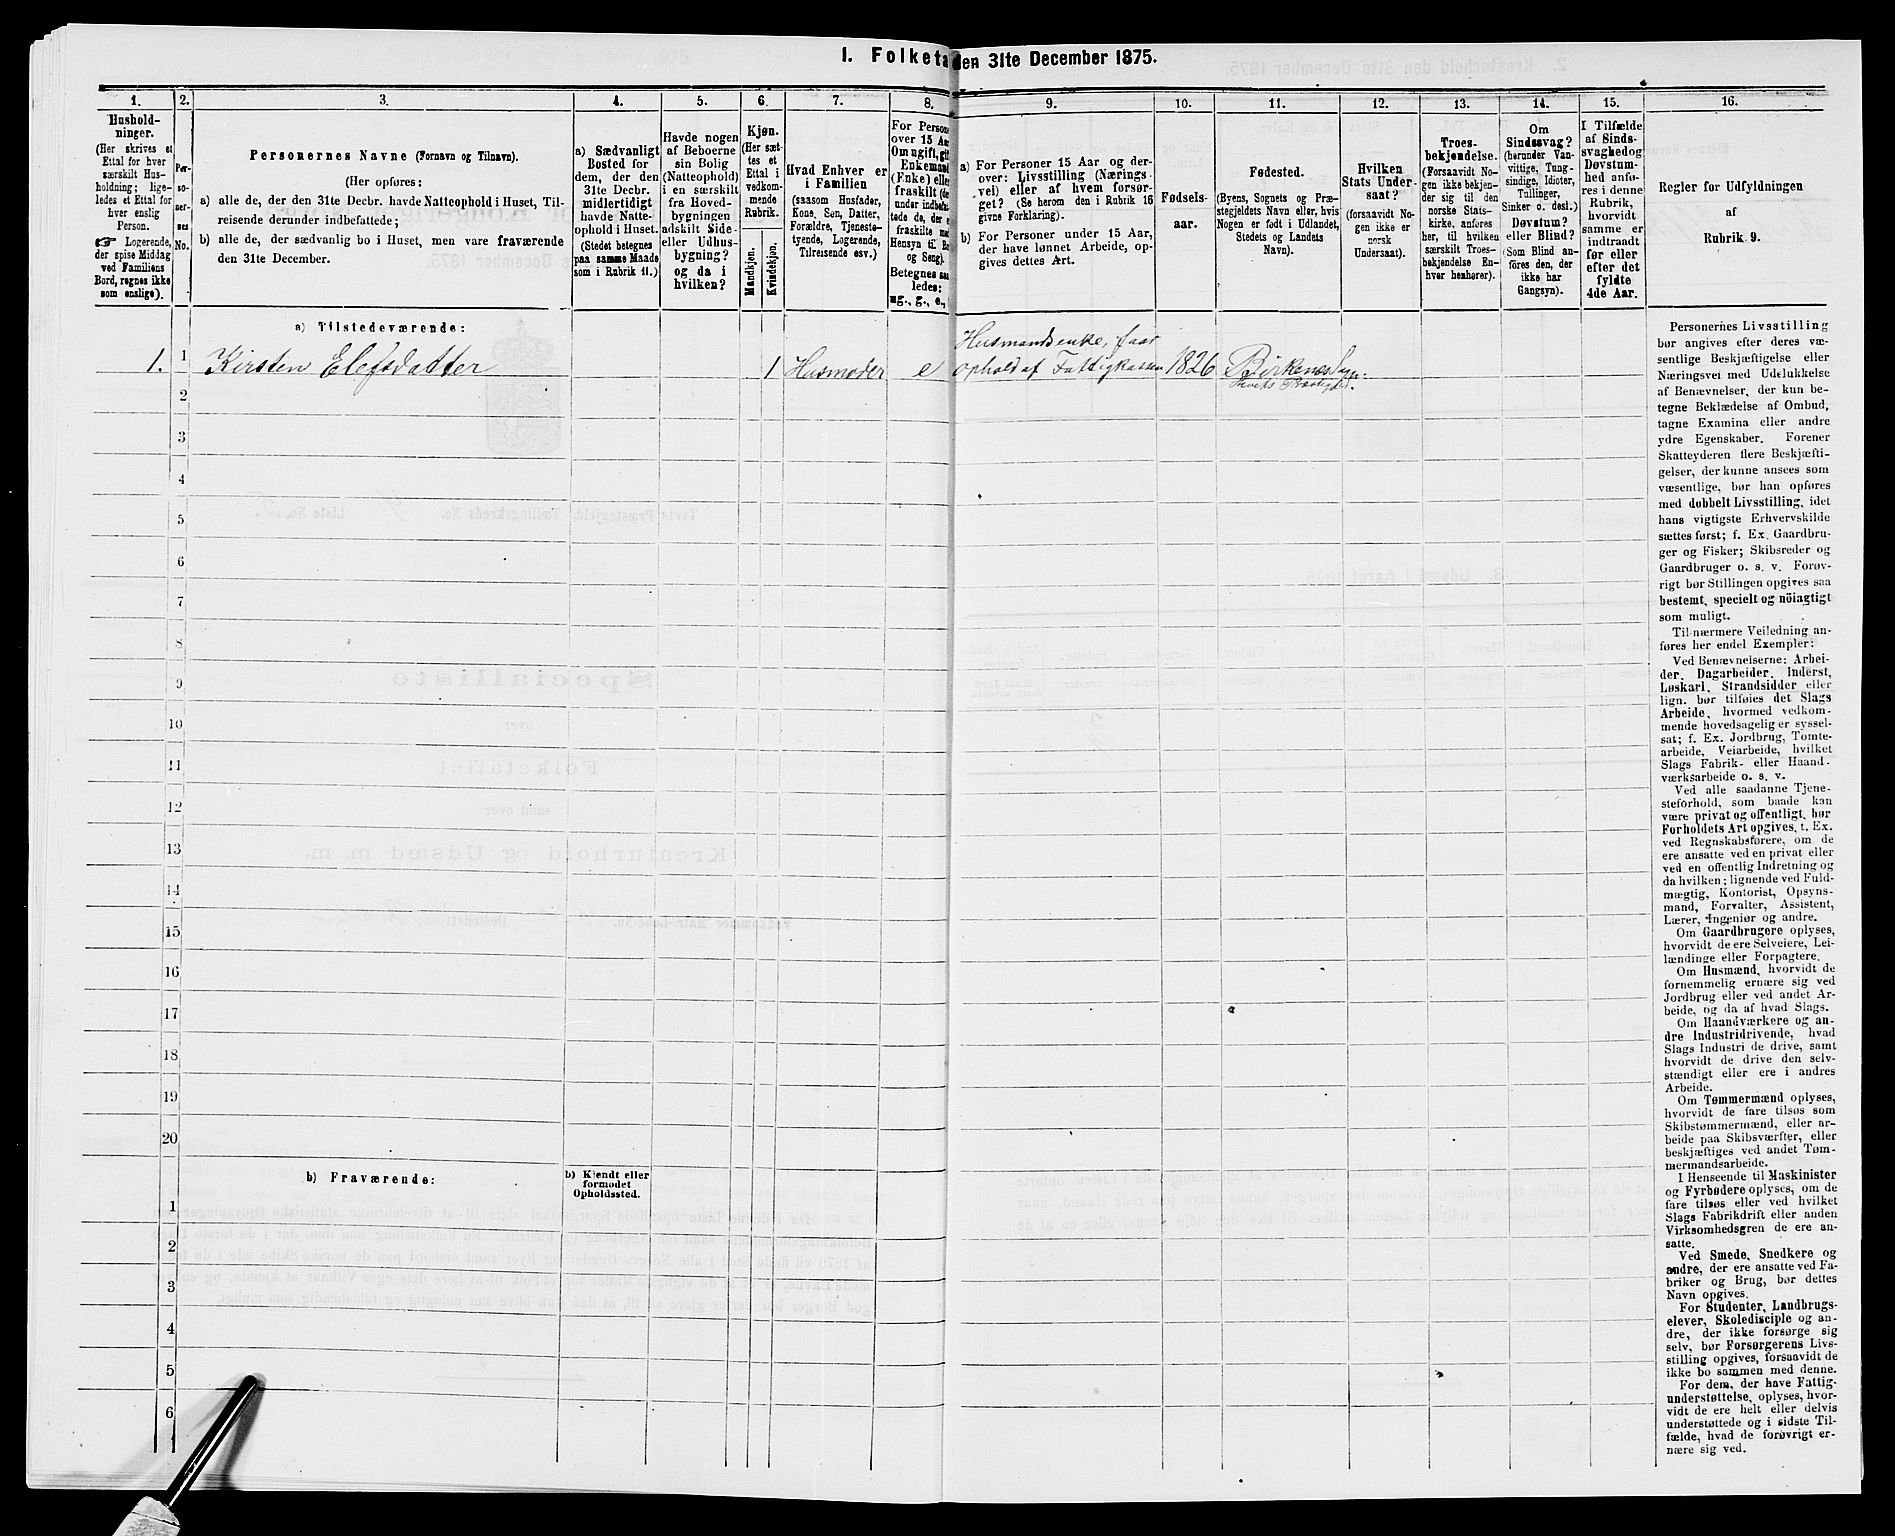 1. Folketa den 31te December 1875.
1. 2. 3. 4. 5. 6. 7. 8. 9. 10. 11. 12. 13. 14. 15. 16.
Hushold-
ninger.
(Her skrives et
Ettal for hver
særskilt Hus-
holdning; lige-
ledes et Ettal for
hver enslig
Person.
☞ Logerende,
der spise Middag
ved Familiens
Bord, regnes ikke
som enslige).
Per-
so-
ner-
nes
No.
Personernes Navne (Fornavn og Tilnavn).
(Her opføres:
a) alle de, der den 31te Decbr. havde Natteophold i Huset, Til-
reisende derunder indbefattede;
b) alle de, der sædvanlig bo i Huset, men vare fraværende
den 31te December.
a) Sædvanligt
Bosted for
dem, der den
31te Decbr.
midlertidigt
havde Natte-
ophold i Huset.
(Stedet betegnes
paa samme Maade
som i Rubrik 11.)
Havde nogen
af Beboerne
sin Bolig
(Natteophold)
i en særskilt
fra Hoved-
bygningen
adskilt Side-
eller Udhus-
bygning?
og da i
hvilken?
Kjøn.
(Her sæt-
tes et
Ettal i
vedkom-
mende
Rubrik.
Mandkjøn.
Kvindekjøn.
Hvad Enhver er
i Familien
(saasom Husfader,
Kone, Søn, Datter,
Forældre, Tjeneste-
tyende, Logerende,
Tilreisende osv.)
For Person
over 15 Aa
Om ugift, gif
Enkemand
(Enke) elle
fraskilt (de
under indbefat-
tede de, der e
fraskilte med
Hensyn til Bo
og Seng).
Betegnes saa
ledes:
ug., g., e.,
a) For Personer 15 Aar og der-
over: Livsstilling (Nærings-
vei) eller af hvem forsør-
get? (Se herom den i Rubrik 16
givne Forklaring).
b) For Personer under 15 Aar,
der have lønnet Arbeide, op-
gives dettes Art.
Fødsels-
aar.
Fødested.
(Byens, Sognets og Præ-
stegjeldets Navn eller, hvis
Nogen er født i Udlandet,
Stedets og Landets
Navn).
Hvilken
Stats Under-
saat?
(forsaavidt No-
gen ikke er
norsk
Undersaat).
Troes-
bekjendelse.
(Forsaavidt No-
gen ikke bekjen-
der sig til den
norske Stats-
kirke, anføres
her, til hvilken
særskilt Troes-
bekjendelse En-
hver henhører).
Om
Sindssvag?
(herunder Van-
vittige, Tung-
sindige, Idioter,
Tullinger,
Sinker o. desl.)
Døvstum?
eller Blind?
(Som Blind an-
føres den, der
ikke har
Gangsyn).
I Tilfælde
af Sinds-
svaghed og
Døvstum-
hed anfø-
res i denne
Rubrik,
hvorvidt
samme er
indtraadt
før eller
efter det
fyldte
4de Aar.
Regler for Udfyldningen
af
Rubrik 9.
a) Tilstedeværende:
Husmandsenke, faar
1. 1 Kirsten Elefsdatter 1 Husmoder e ophold af Fattigkassen 1826 Birkenæs Sogn.
Præstegjd.
2
3
4
5
6
7
8
9
10
11
12
13
14
15
16
17
18
19
20
b) Fraværende:
b) Kjendt eller
formodet
Opholdssted.
1
2
3
4
5
6
Personernes Livsstilling
bør angives efter deres væ-
sentlige Beskjæftigelse eller
Næringsvei med Udelukkelse
af Benævnelser, der kun be-
tegne Beklædelse af Ombud,
tagne Examina eller andre
ydre Egenskaber. Forener
Skatteyderen flere Beskjæfti-
gelser, der kunne ansees som
væsentlige, bør han opføres
med dobbelt Livsstilling, idet
hans vigtigste Erhvervskilde
sættes først; f. Ex. Gaardbru-
ger og Fisker; Skibsreder og
Gaardbruger o. s. v. Forøv-
rigt bør Stillingen opgives saa
bestemt, specielt og nöiagtigt
som muligt.
Til nærmere Veiledning an-
føres her endel Exempler:
Ved Benævnelserne: Arbei-
der, Dagarbeider, Inderst,
Løskarl, Strandsidder eller
lign. bør tilføies det Slags
Arbeide, hvormed vedkom-
mende hovedsagelig er syssel-
sat; f. Ex. Jordbrug, Tomte-
arbeide, Veiarbeide, hvilket
Slags Fabrik- eller Haand-
værksarbeide o. s. v.
Ved alle saadanne Tjene-
steforhold, som baade kan
være privat og offentligt, bør
Forholdets Art opgives, t. Ex.
ved Regnskabsførere, om de
ere ansatte ved en privat eller
ved en offentlig Indretning og
da hvilken; lignende ved Fuld-
mægtig, Kontorist, Opsyns-
mand, Forvalter, Assistent,
Lærer, Ingeniør og andre.
Om Gaardbrugere oplyses,
hvorvidt de ere Selveiere, Lei-
lændinge eller Forpagtere.
Om Husmænd, hvorvidt de
fornemmelig ernære sig ved
Jordbrug eller ved andet Ar-
beide, og da af hvad Slags.
Om Haandværkere og an-
dre Industridrivende, hvad
Slags Industri de drive, samt
hvorvidt de drive den selv-
stændigt eller ere i andres
Arbeide.
Om Tømmermænd oplyses,
hvorvidt de fare tilsøs som
Skibstømmermænd, eller ar-
beide paa Skibsværfter, eller
beskjæftiges ved andet Tøm-
mermandsarbeide.
I Henseende til Maskinister
og Fyrbødere oplyses, om de
fare tilsøs eller ved hvilket
Slags Fabrikdrift eller anden
Virksomhedsgren de ere an-
satte.
Ved Smede, Snedkere og
andre, der ere ansatte ved Fa-
briker og Brug, bør dettes
Navn opgives.
For Studenter, Landbrugs-
elever, Skoledisciple og an-
dre, der ikke forsørge sig
selv, bør Forsørgerens Livs-
stilling opgives, forsaavidt de
ikke bo sammen med denne.
For dem, der have Fattig-
understøttelse, oplyses, hvor-
vidt de ere helt eller delvis
understøttede og i sidste Til-
fælde, hvad de forøvrigt er-
nære sig ved.